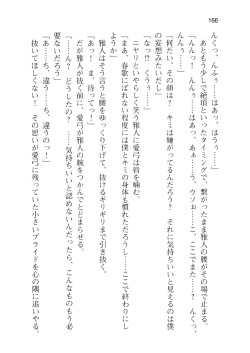 166
んくっ、んふぅ……はあっ、はうっ……」
あともう少しで絶頂といったタイミングで、繋がったまま雅人の腰がその場で止まる。
「んんっ！　んんっ……はぁ……う、ウソぉ……こ、ここでまた……？　んくっ、
んんぅ」
「何だい、その顔は？　キミは嫌がってるんだろう？　それに気持ちいいと見えるのは僕
の妄想みたいだし」
「なっ!!　くうぅ……」
ニヤリといやらしく笑う雅人に愛弓は唇を噛む。
「まあ、春歌にばれない程度には僕とキミの身体も慣れただろうし……ここで終わりにし
ようか」
雅人はそう言うと腰をゆっくり下げて、抜けるギリギリまで引き抜く。
「あっ！　ま、待ってっ！」
だが雅人が抜く前に、愛弓が雅人の腕をつかんでとどまらせる。
「……ん？　どうしたの？　……気持ちいいと認めないんだったら、こんなものもう必
要ないだろう」
「あ……ち、違う……ち、違うの……っ」
抜いてほしくない！　その思いが愛弓に残っていた小さいプライドを心の隅に追いやる。